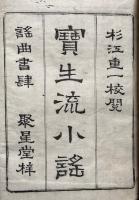 杉江重一校閲
寶生流小謡
謡曲書肆 聚星堂梓